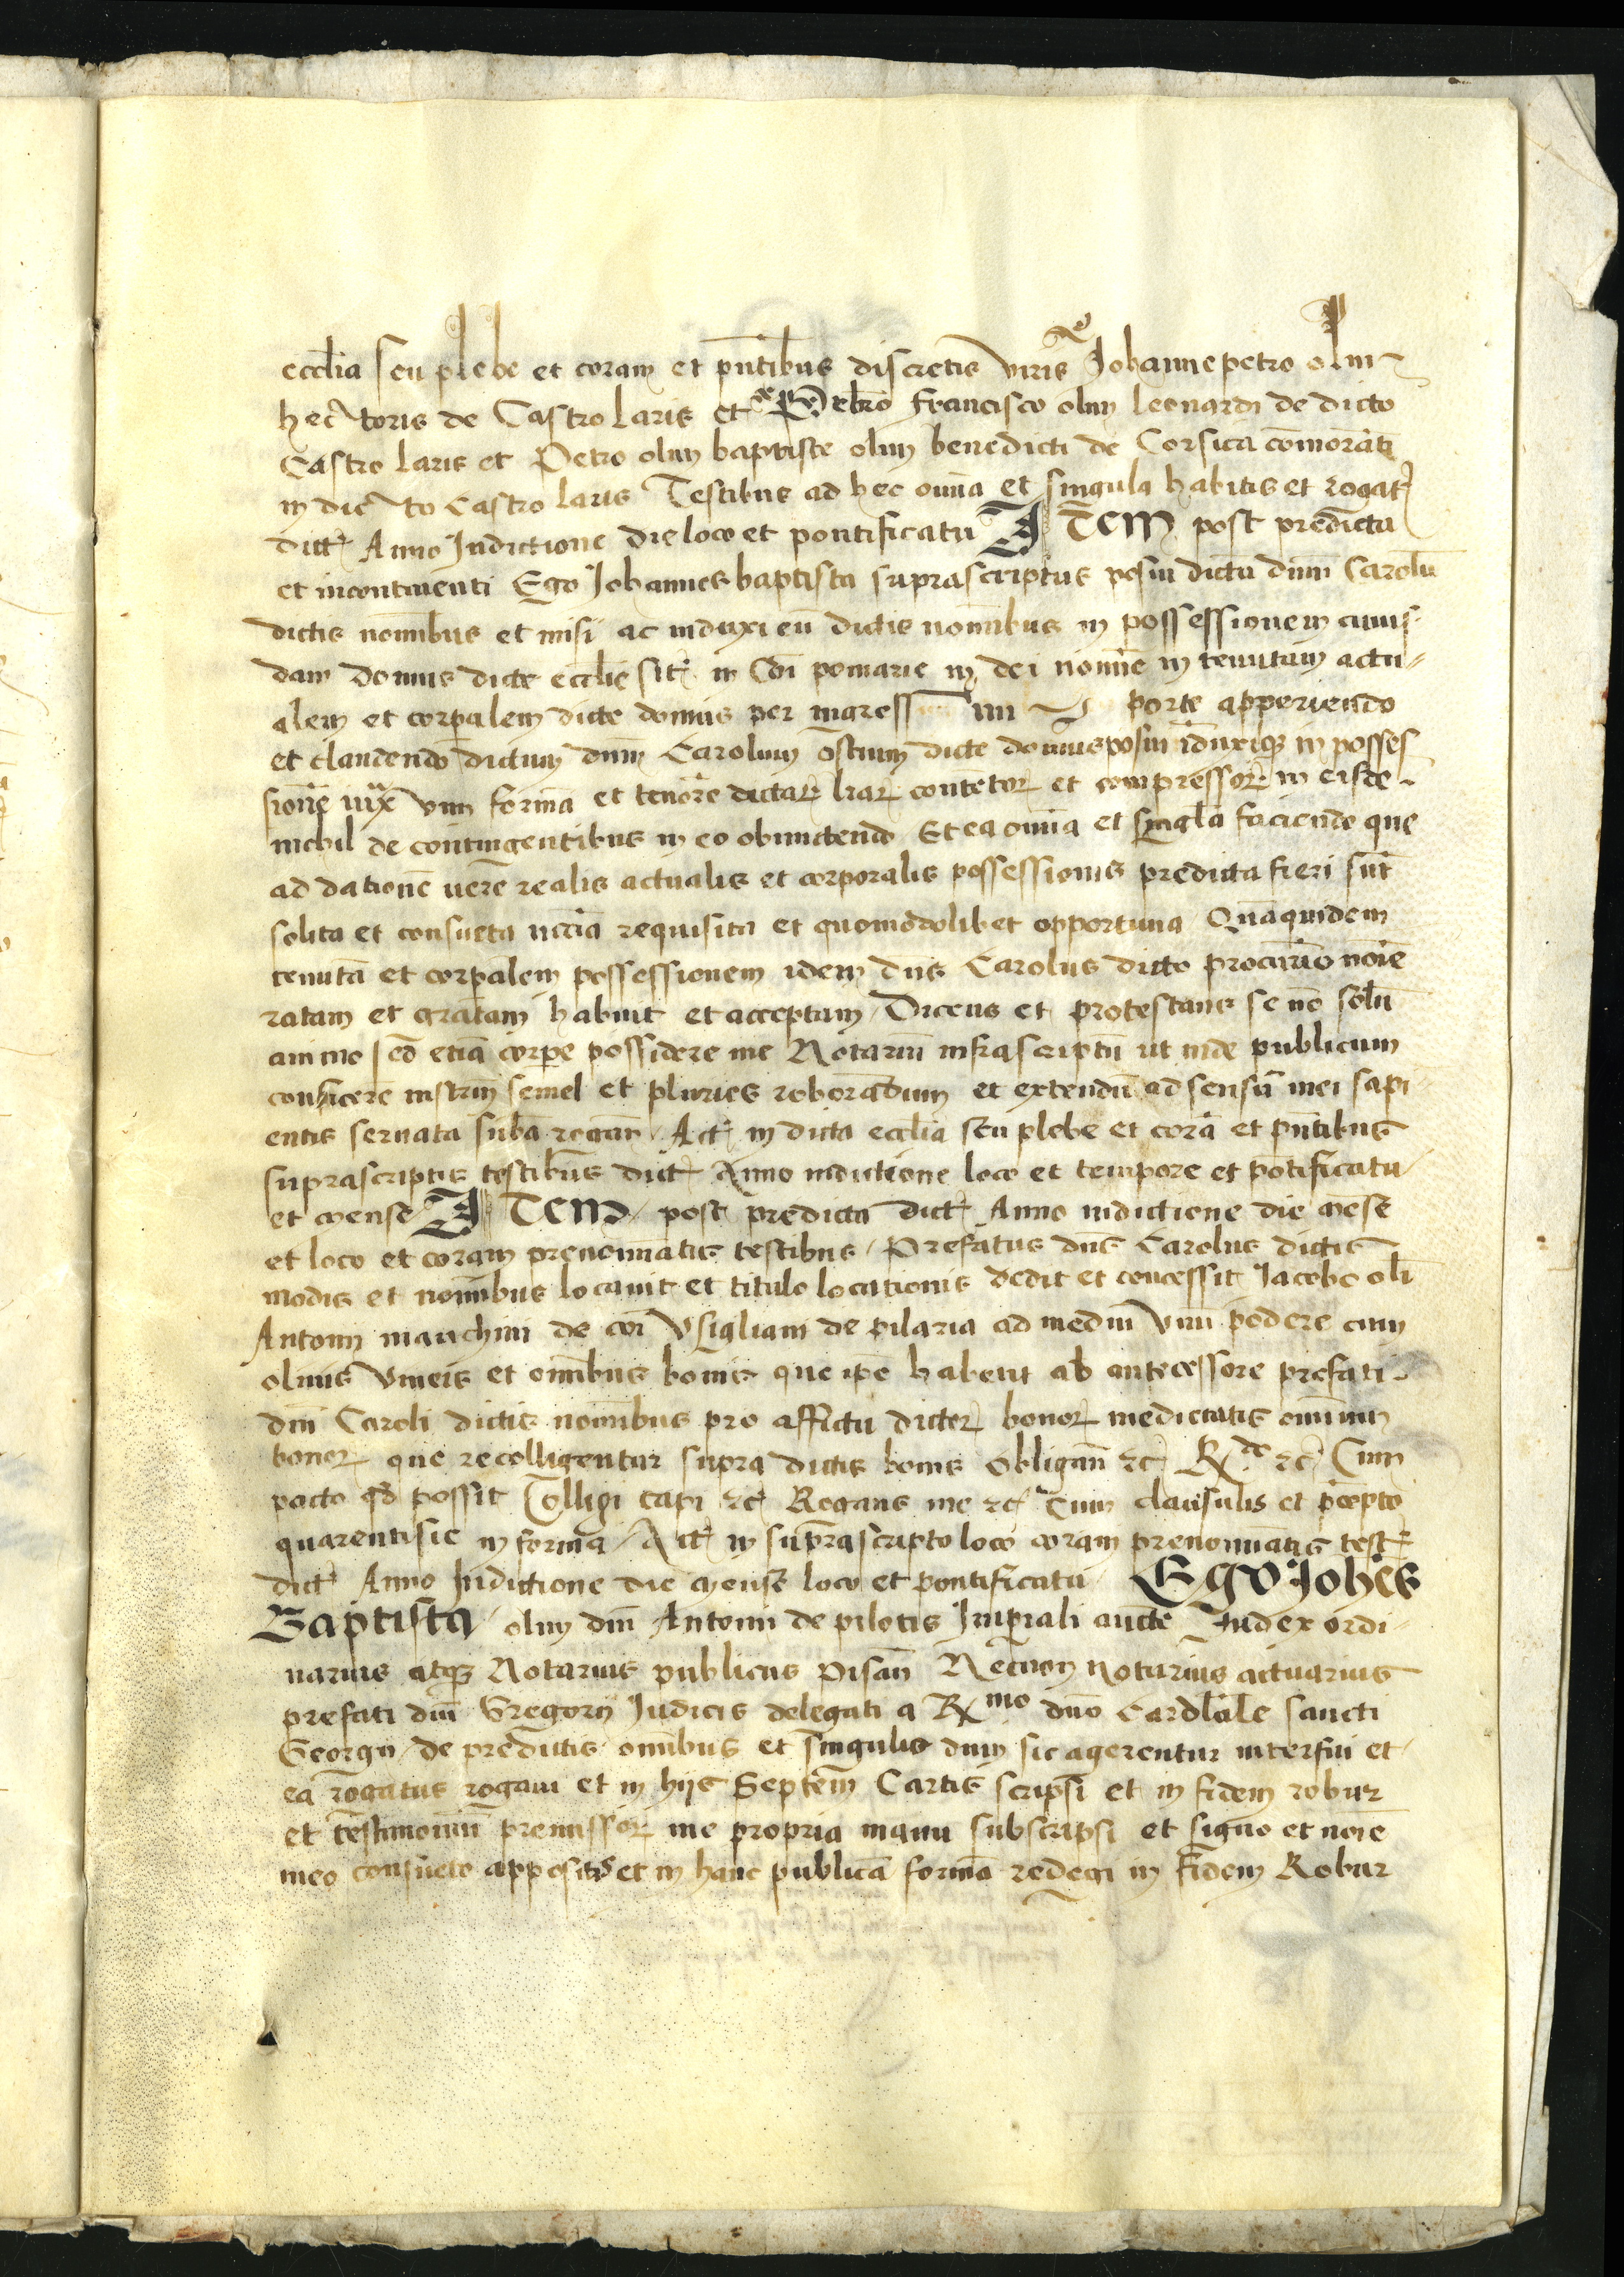 eccľia seu plebe et coram et pn̄tibus discretis viris Johannepetro olim
hectoris de Castro laris et Petro francisco olim leonardi de dicto
Castro laris et Petro olim baptiste olim benedicti de Corsica com̄oranti
in dicto Castro laris Testibus ad hec om̄ia et singula habitis et rogat
dict Anno Indictione die loco et pontificatu ITEM post predicta
et incontinenti Ego Johannes baptista suprascriptus posui dictū dn̄m Carolū
dictis nomībus et misi ac induxi eū dictis nomībus in possessionem cuius
dam domus dicte eccľie sit in Cōi pomarie in dei nomīe in tenutam actu
alem et corpalem dicte domus per ingress porte apperiendo
et claudendo dictum dn̄m Carolum ostium dicte domus posui īduxiq in posses
sionē iux vim formā et tenorē dictar lrar contetor et compressor in eisdē
nichil de contingentibus in eo obmictendo Et ea om̄ia et singľa faciendo que
ad dationē uere realis actualis et corporalis possessionis predicta fieri sūt
solita et consueta nccīa requisita et quomodolibet opportuna Quāquidem
tenutā et corpalem possessionem idem dn̄s Carolus dicto procūrio nōie
ratam et gratam habuit et acceptam Dicens et protestans se nō solū
animo sed etiā corpe possidere me Notariū infrascriptū ut inde publicum
conficere instrm̄ semel et pluries roborādum et extendū ad sensū mei sapi
entis seruata subā rogan̄ Act in dicta eccľia seu plebe et corā et pn̄tibus
suprascriptis testibus dict Anno indictione loco et tempore et pōtificatu
et mense ITEM post predicta dict Anno indictione die mēse
et loco et coram prenominatis testibus Prefatus dn̄s Carolus dictis
modis et nomībus locauit et titulo locationis dedit et concessit Jacobo olī
Antonii manchini de cōi Usigliani de pilaria ad mediū vnū podere cum
oliuis vineis et omībus bonis que ipē habent ab antecessore prefati
dn̄i Caroli dictis nomībus pro affictu dictor bonor medietatis omīum
bonor que recolligentur supra dictis bonis Obligan̄ &c R &c Cum
pacto qd possit Colligi capi &c Rogans me &c cum clausulis et pcepto
quarentisie in formā Act in suprascripto loco coram prenominatis test
dict Anno Indictione die mense loco et pontificatu EGO Johēs
Baptista olim dn̄i Antonii de pilotis Imperiali aucte Judex ordi
narius atq Notarius publicus pisan̄ Necnon notarius actuarius
prefati dn̄i Gregorij Judicis delegati a Rmo dn̄o Cardľale sancti
Georgii de predictis omībus et singulis dum sic agerentur interfui et
ea rogatus rogaui et in hijs Septem Cartis scripsi et in fidem robur
et testimoniū premissor me propria manu subscripsi et signo et nōie
meo consueto appositis et in hanc publicā formā redegi in fidem Robur